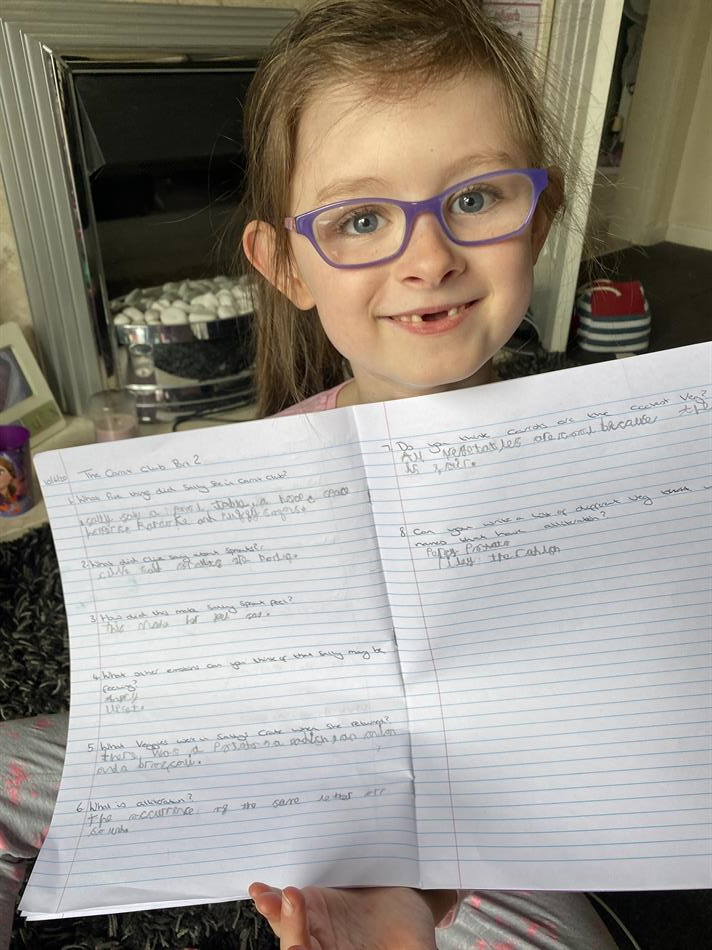 The Carrot Club Part 2
1. What five thing did Sally see in Carrot Club?
Sally saw a pool table, a
karaoke and
2. What did Clive say about sprouts?
Clive said
3. How did this make Sally Sprout feel?
This made her feel sad.
4. What other emotions can you think of that Sally may be
feeling?
Angry
Upset.
5. What Veggies were in Sally's Café when she returns?
there was a Potato a radish an onion
and a broccoli.
6. What is alliteration?
The occurrence of the same letter or
sound.
7. Do you think carrots are the coolest Veg?
All vegetables are cool because the
is
8. Can you write a list of different veg
names that have alliteration?
Potato
the